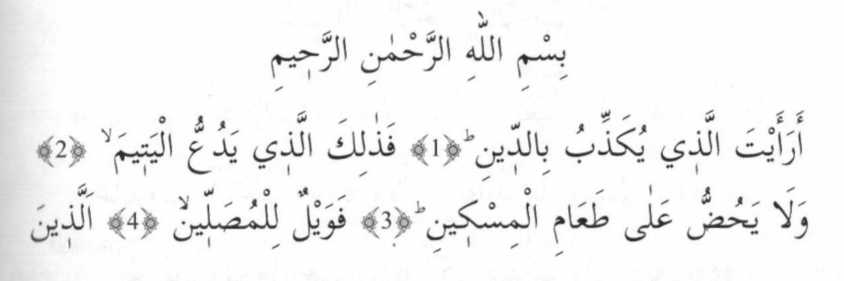 بِسْمِ اللّٰهِ الرَّحْمٰنِ الرَّحٖيمِ
أَرَأَيْتَ الَّذٖي يُكَذِّبُ بِالدّٖينِ ؕ ﴿1﴾ فَذٰلِكَ الَّذٖي يَدُعُّ الْيَتٖيمَ ۙ ﴿2﴾
وَلَا يَحُضُّ عَلٰى طَعَامِ الْمِسْكٖينِ ؕ ﴿3﴾ فَوَيْلٌ لِلْمُصَلّٖينَۙ ﴿4﴾ اَلَّذٖينَ